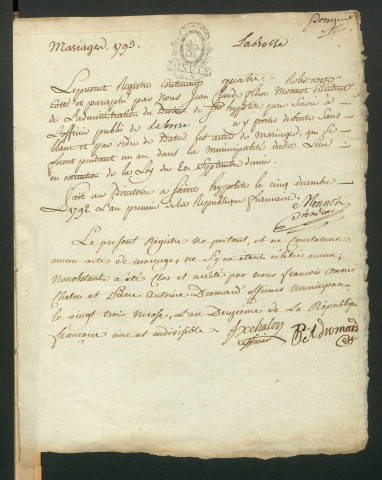 Mariages. 1793.
Labrosse
Le present Registre Contenant quatre Rolès a été
Cotté et paraphé par Nous Jean Claude Felix Monnot President
de L'administration du District de St hypolite pour Servir à
L'officier public de Labrosse a y porter de Suite Sans
blanc et par ordre de Dates les actes de mariages qui Se
feront pendant un an dans la municipalité dudit Lieu
en exécution de la Loy du 20 Septembre dernier
fait au Directoire a Sainte hypolite le cinq decembre
1792. L'an premier de la Republique francaise.
Monnot
president
Le present Registre ne portant, et ne Constatant
aucun acte de mariage, ne S'y en étant célébré aucun;
Nonobstant a été Clos et arrété par nous francois xavier
Chalon et Pierre Antoine Dromard officiers municipaux
le vingt trois nivose, L'an Deuxieme de la République
francaise une et indivisible.
fx chalon
officier
P A dromard